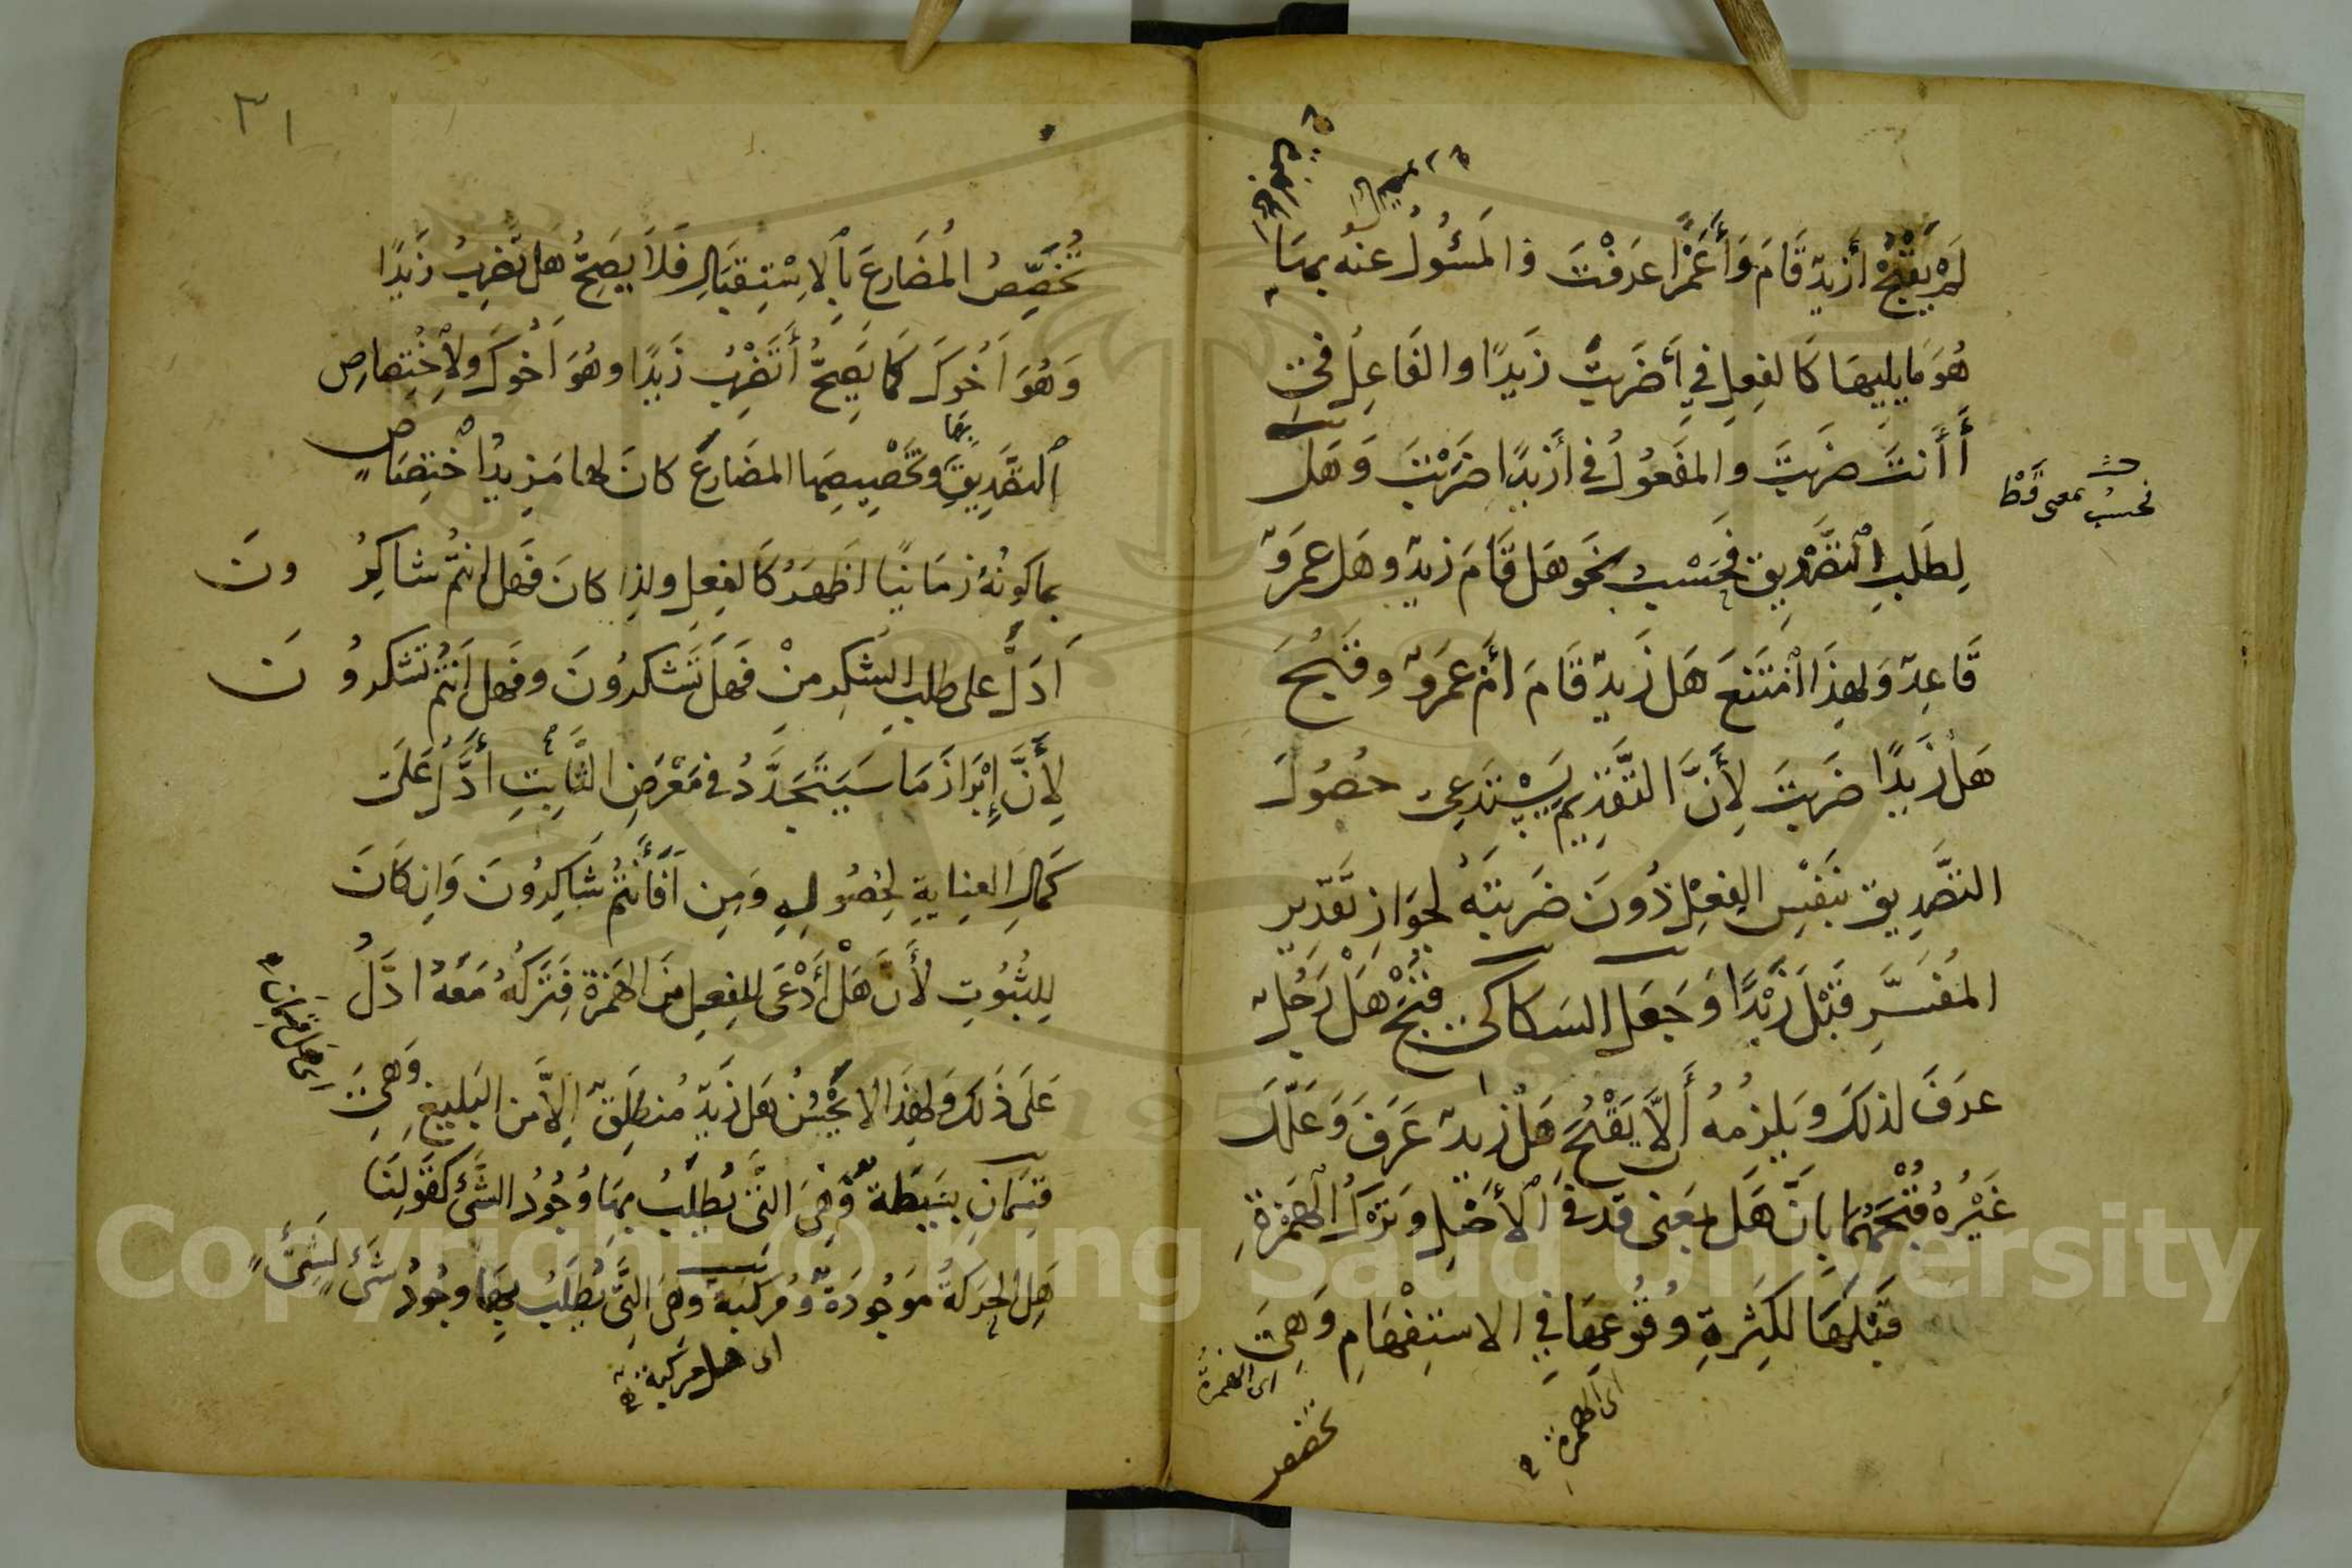 لَمْ يَقْبُحْ أَزَيدٌ قَامَ وَأَعَمْرًا عَرَفْتَ والمَسْئُولُ عنه بِهَا
هُوَ مَا يليهَا كَالفِعلِ فِي أَضَرَبْتَ زَيدًا والفَاعِلِ فِي
أَأَنتَ ضَرَبْتَ والمفعُولِ في أزَيدًا ضَرَبْتَ وَهَل
لِطَلَبِ التَّصْدِيقِ فَحَسْبُ نَحَو هَل قَامَ زَيدٌ وهَل عَمرٌو
قَاعِدٌ وَلِهَذَا امْتَنَعَ هَل زَيدٌ قَامَ أمْ عَمرٌو وقَبُحَ
هَل زَيدًا ضَرَبتَ لِأَنَّ التَّقدِيمَ يَسْتَدعِي حصُولَ
التصدِيقِ بنَفْسِ الفِعْلِ دُونَ ضَرَبتَهُ لجوَازِ تَقدِيرِ
المُفَسَّرِ قَبْلَ زَيْدًا وَجَعَلَ السكاكي قُبْحَ هَلْ رَجُلٌ
عرَفَ لذلكَ وَيلزمُهُ أَلَّا يَقْبُحَ هَل زيدٌ عَرَفَ وَعَلَّلَ
غَيْرُهُ قُبْحَهُمَا بِانَّ هَل بمَعنى قد فِي الأصْلِ وتَرْكُ الهَمْزَةِ
قَبْلَهَا لكَثرَةِ وُقُوعِهَا فِي الاستِفْهَامِ وَهِيَ
اى الهمزة
اى الهمزة
تخصص
فحسبُ بمعنى قَطْ
٣١
تُخَصِّصُ المُضَارِعَ بِالاِسْتِقبَالِ فَلَا يَصِحُّ هَل تَضْرِبُ زَيدًا
وَهُوَ اَخُوكَ كَمَا يَصِحُّ أَتَضْرِبُ زَيدًا وهُوَ اَخُوكَ ولاِخْتِصَاصِ
التَّصْدِيقِ بِهَا وتَخْصِيصِهَا المضَارِعَ كانَ لها مَزِيدُ اخْتِصَاصٍ
بما كَونُهُ زمَانيًا اَظهَرُ كَالفِعلِ ولذا كانَ فَهَل انتُمْ شاكِرُونَ
اَدَلَّ على طلبِ الشكرِ منْ فَهَل تَشكرُونَ وفَهَل اَنتُمْ تَشكرُونَ
لِأَنَّ إِبْرَازَ مَا سَيَتَجَدَّدُ في مَعْرَضِ الثَّابِتِ أَدَلُّ عَلَى
كَمَالِ العِنايةِ لحِصُولِهِ وَمِن اَفَأَنْتُمْ شَاكِرُونَ وَاِن كَانَ
لِلثُبُوتِ لأَنَّ هَلْ أَدْعَى للفِعلِ مِنَ الهَمْزَةِ فَتَرْكُهُ مَعَهُ ادَلُّ
عَلَى ذَلك وَلهِذَا لا يَحْسُنُ هَل زَيدٌ مُنطَلِقٌ اِلاَّ من البَلِيغِ وَهِيَ
قِسْمَانِ بَسِيطَةٌ وهِيَ التي يُطلَبُ بِهَا وُجُودُ الشَّيْ كقَولِنَا
هَلِ الحَرَكةُ مَوجُودَةٌ ومُرَكَّبةٌ وَهِيَ التِي يُطلَبُ بِهَا وجُودُ شَيْءٍ لِشَيْءٍ
اى هل قسمان
اى هل مركبة